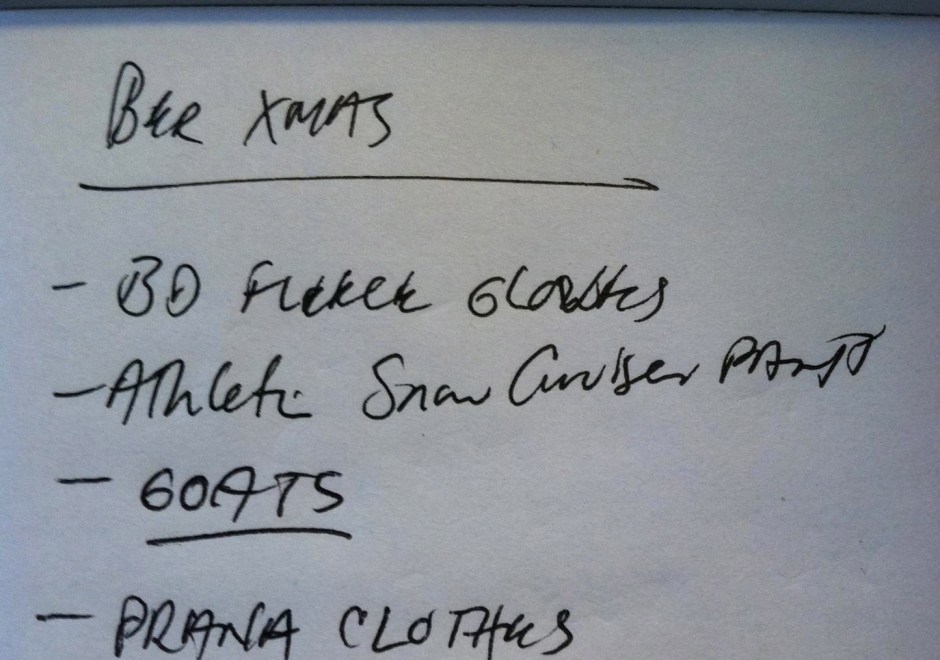 BER XMAS
- BD FLEKER GLOVES
- Athletic Snow Cruiser PANTS
- GOATS
- PRANA CLOTHES